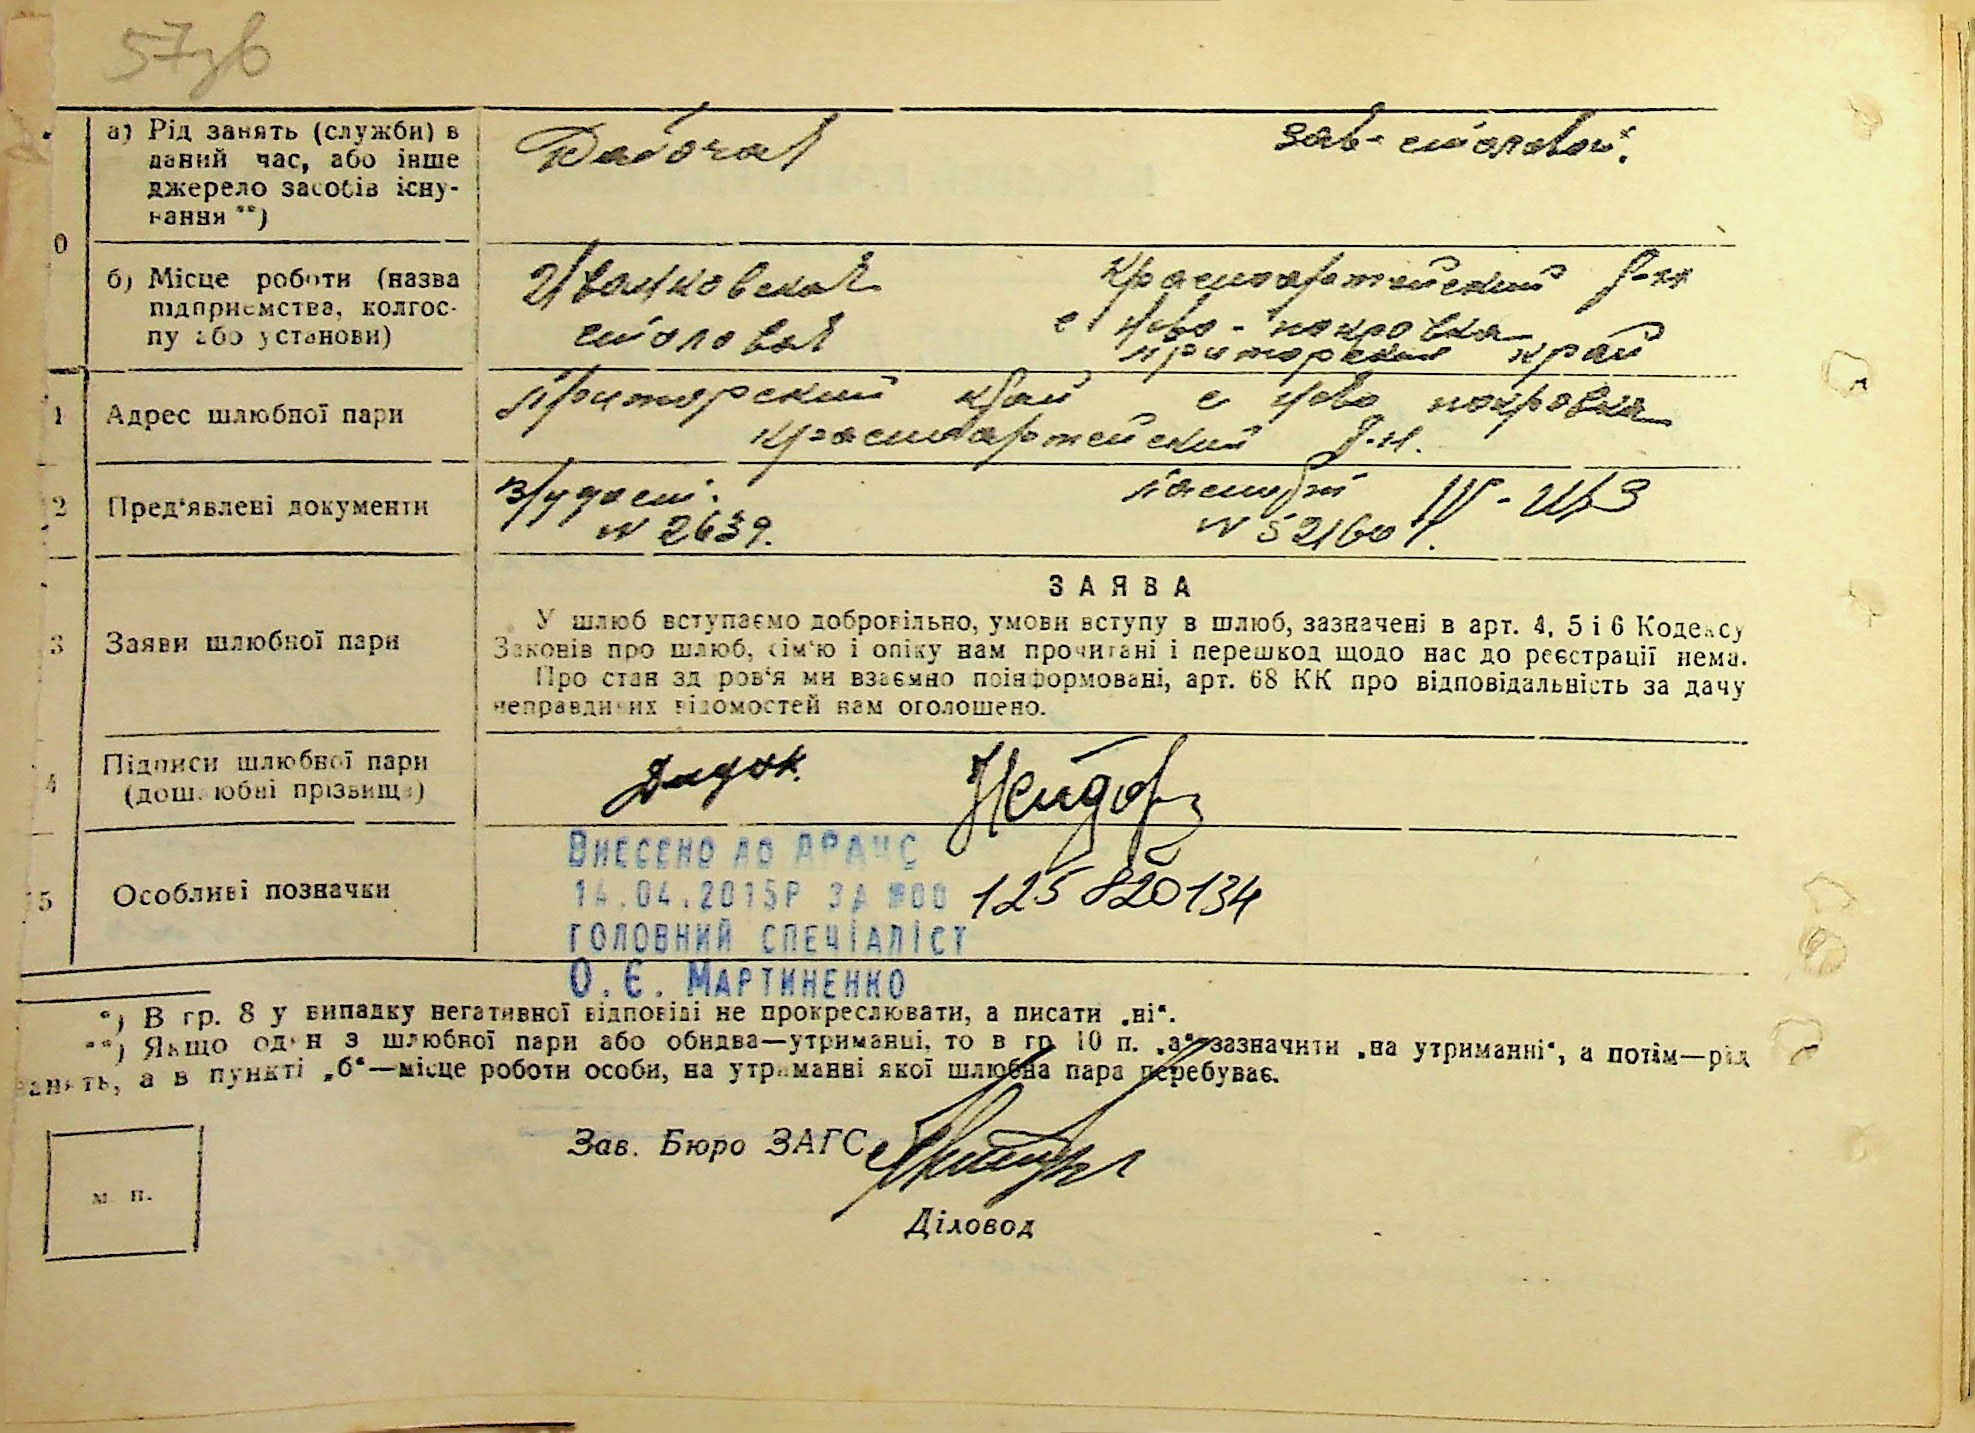 57зв
а) Рід занять (служби) в
даний час, або інше
джерело засобів існу-
вання **)
Рабочая
Зав-столовой.
0
б) Місце роботи (назва
підприємства, колгос-
пу або установи)
Иванковская
столовая
Красноармейский р-н
с Ново-покровка
Приморский край
1 Адрес шлюбної пари
Приморский край с Ново покровка
Красноармейский р-н.
2 Пред'явлені документи
в/удост.
N 2639.
паспорт IV-
N 521601.
ЗАЯВА
3 Заяви шлюбної пари
У шлюб вступаємо добровільно, умови вступу в шлюб, зазначені в арт. 4, 5 і 6 Кодексу
Законів про шлюб, сім'ю і опіку нам прочитані і перешкод щодо нас до реєстрації нема.
Про стан здоров'я ми взаємно поінформовані, арт. 68 КК про відповідальність за дачу
неправдивих відомостей нам оголошено.
4 Підписи шлюбної пари
(дошлюбні прізвища)
Дидок.
5 Особливі позначки
Внесено до ДРАЦС
14.04.2015р за №00 125 820134
головний спеціаліст
О.Є. Мартиненко
*) В гр. 8 у випадку негативної відповіді не прокреслювати, а писати „ні“.
**) Якщо один з шлюбної пари або обидва—утриманці, то в гр. 10 п. „а“ зазначити „на утриманні“, а потім—рід
занять, а в пункті „б“—місце роботи особи, на утриманні якої шлюбна пара перебуває.
Зав. Бюро ЗАГС
м. п.
Діловод